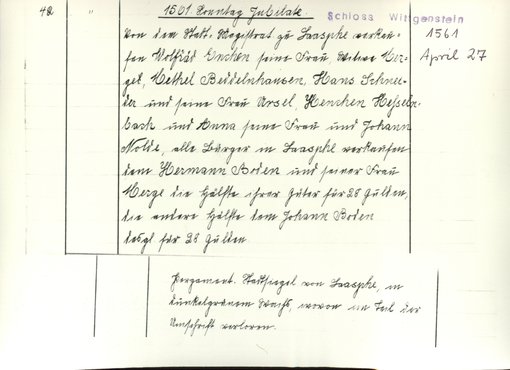 42 " 1501 Sonntag Jubilate. Schloss Wittgenstein
1561
April 27
Von dem Stadt. Magistrat zu Laasphe verkau-
fen Wolfried seine Frau, Witwe Mer-
gel, Methel Beddelnhausen, Hans Schnei-
der und seine Frau Ursel, Henchen Hesseln-
bach und Anna seine Frau und Johann
Nolde, alle Bürger in Laasphe verkaufen
dem Hermann Boden und seiner Frau
Merge die Hälfte ihrer Güter für 28 Gulden,
die andere Hälfte dem Johann Boden
desgl für 28 Gulden
Pergament. Stadtsiegel von Laasphe, in
dunkelgrünem Wachs, wovon ein Teil der
Umschrift verloren.